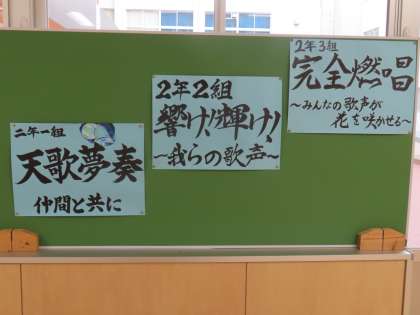 二年一組
天歌夢奏
仲間と共に
2年2組
響け!輝け!
〜我らの歌声〜
2年3組
完全燃唱
〜みんなの歌声が
花を咲かせる〜